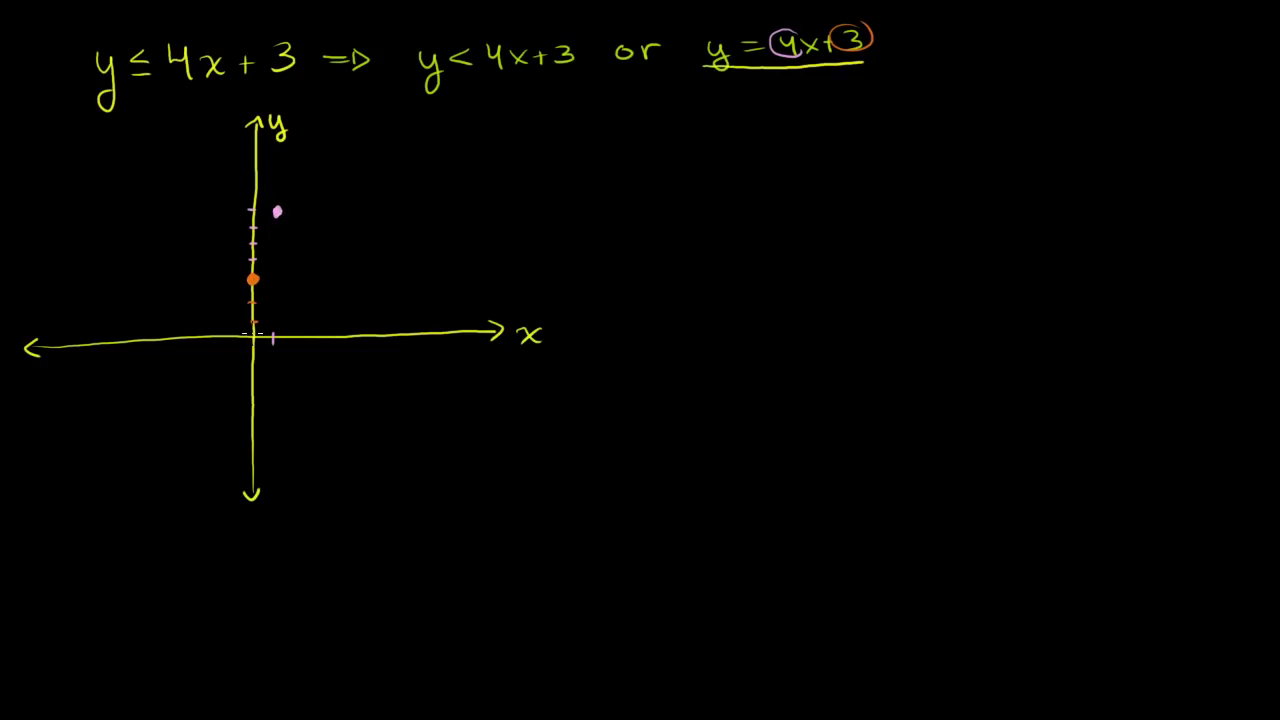 y ≤ 4x + 3 ⇒ y < 4x+3 or y = 4x+3
y
x